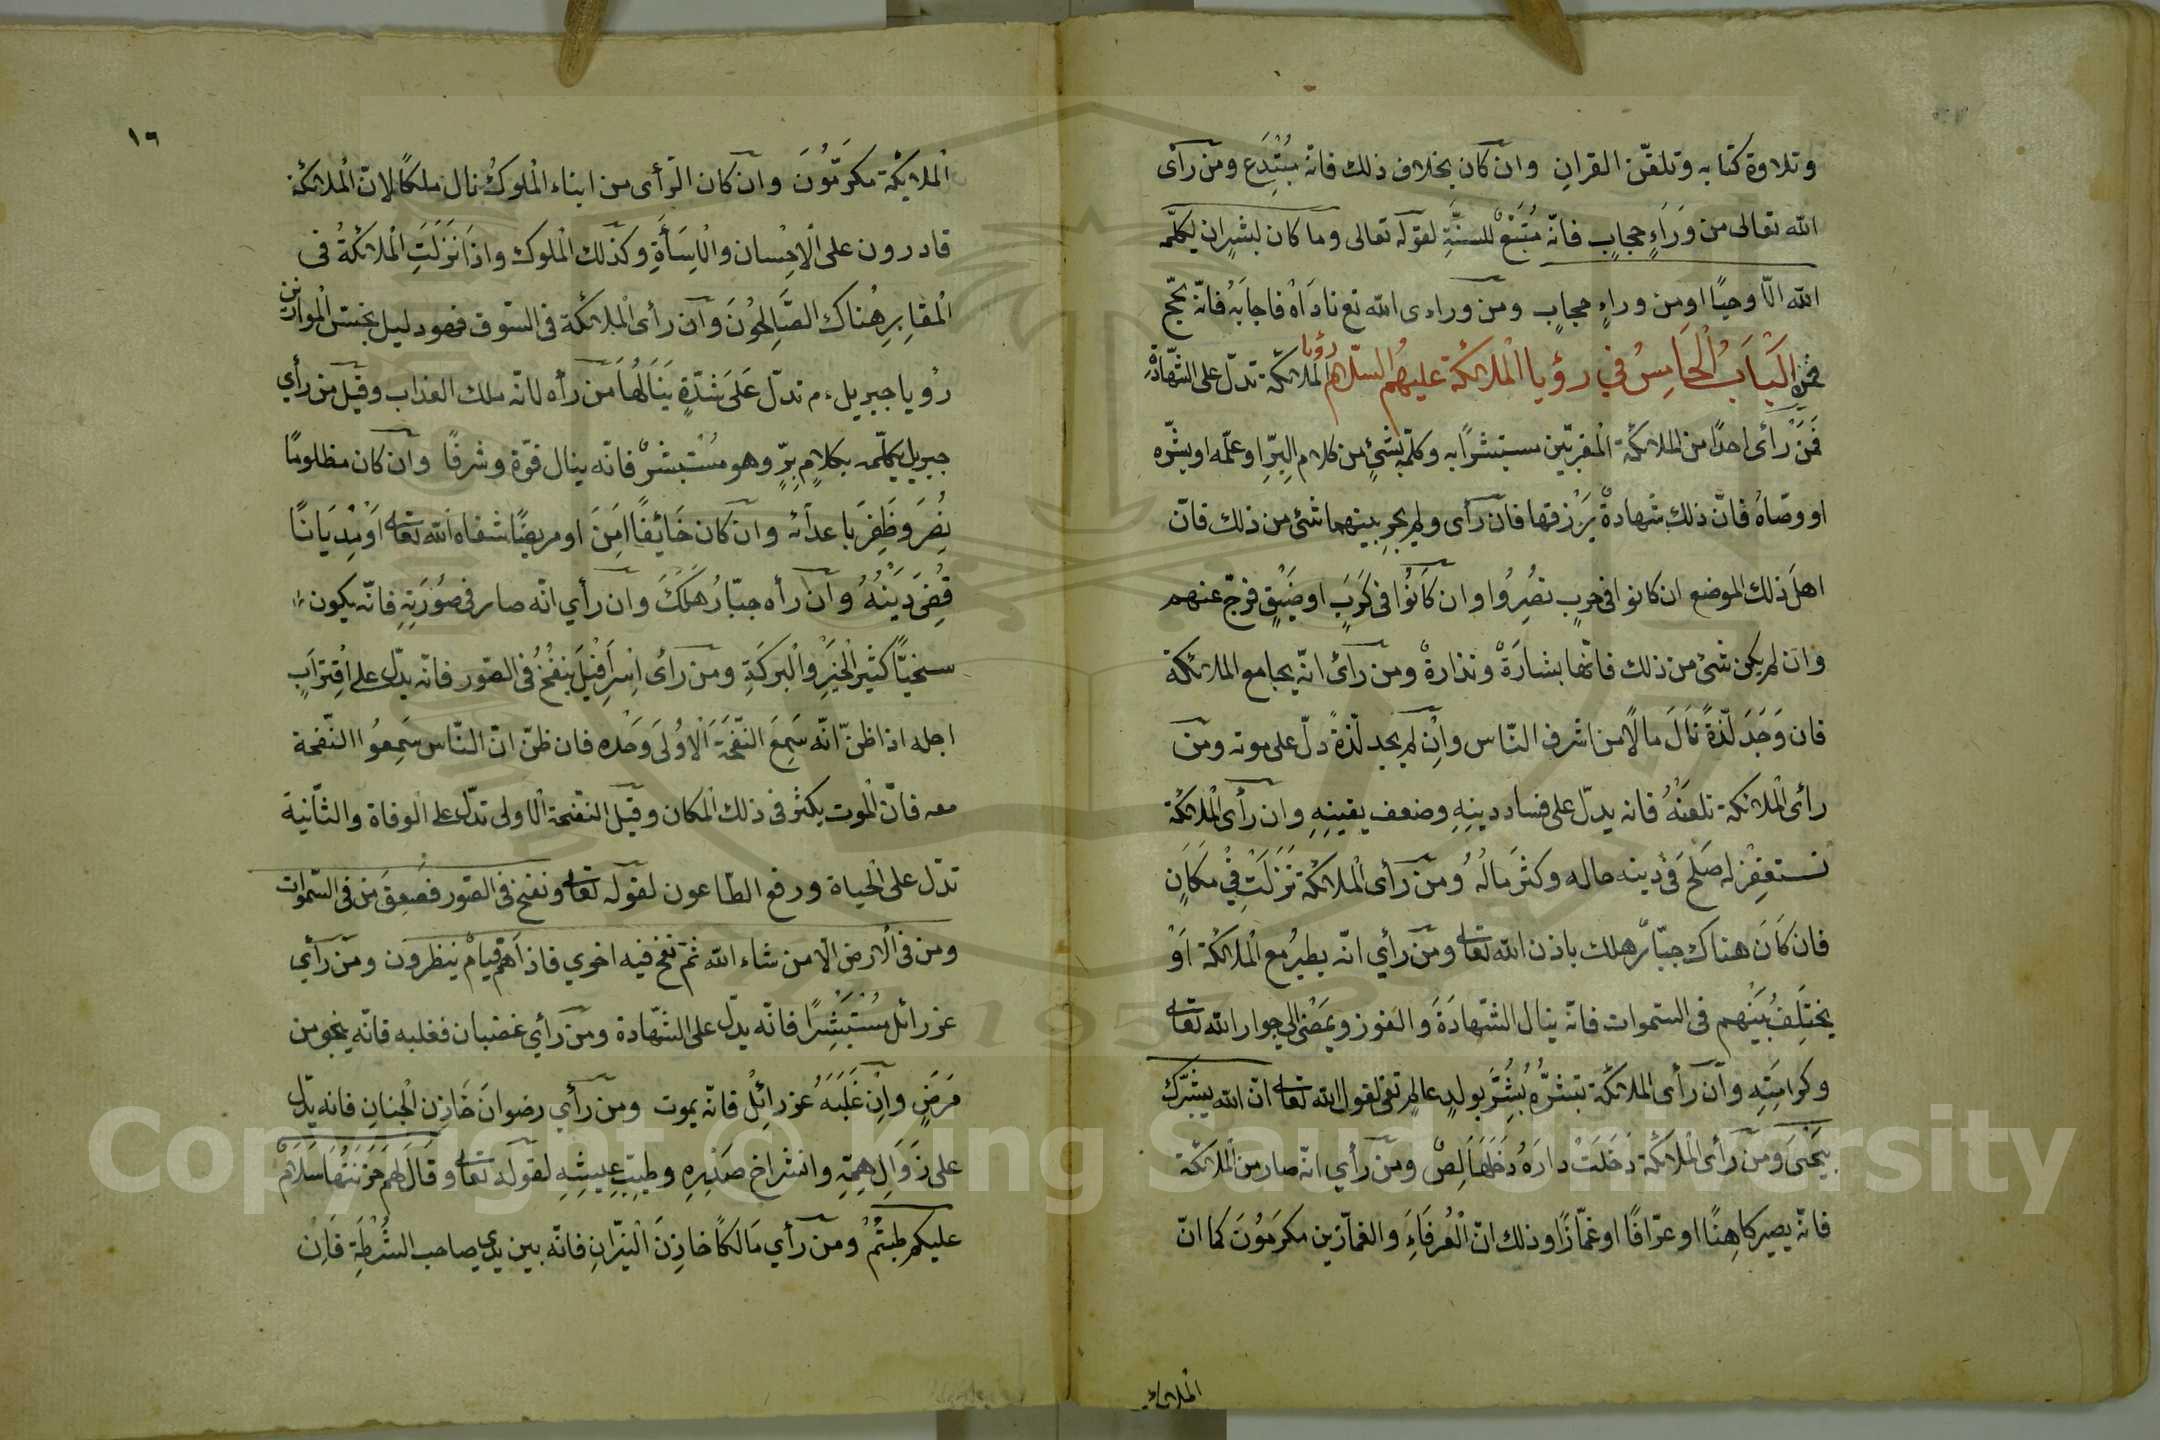 وتلاوة كتابه وتلقّن القرانِ وان كان بخلاف ذلك فانه مُبْتَدَع ومن رآى
الله تعالى من وَرَاءِ حجابٍ فانّه مُتَّبِعٌ للسنَّةِ لقوله تعالى وما كان لبشرٍ ان يكلّمه
الله الّا وحيًا او من وراءِ حجابٍ ومن وراءى الله تع ناداهُ فاجابَهُ فانّه يحجّ
البَابُ الْخَامِسُ في رؤيا الْملائكة عليهُم السّلام رؤيا الملائكة تدلّ على الشّهادة
فَمَنْ رأى احدًا من الملائكة الْمقربّين مستبشرًا به وكلمّه بشئٍ من كلام البِرِّ او علّمه او بشّره
او وصّاهُ فانّ ذلك شهادةٌ يَرْزقها فان رآى ولم يجرِ بينهما شئ من ذلك فانّ
اهلَ ذلك الموضع ان كانوا فى حربٍ نصُرُوا وان كَانُوا فى كَرَبٍ او ضَيْقٍ فرجّ عنهم
وان لم يكن شئ من ذلك فانّها بشارَةٌ ونذارةٌ ومن رآى انّه يجامع الملائكة
فان وَجَدَ لذّةً نَالَ مالًا من اشرف النّاس وانْ لم يجد لذّةً دلّ على موته ومن
رائ الْملائكة تلعنُهُ فانه يدلّ على فساد دينِهِ وضعف يقينِهِ وان رأى الْملائكة
تستغفِرُ له صَلَحَ فى دينه حاله وكثرَ مالُهُ ومن رآى الْملائكة نَزَلَتِ فىْ مكَانٍ
فان كَانَ هناك جبّارٌ هلك باذن الله تعالى ومن رأي انّه يطيرُ مع الْملائكة اَوْ
يختَلِفُ بَيْنهم فى السموات فانّه ينال الشّهادَةَ والفوز ويمضى الى جوار الله تعالى
وكرامَتِهِ وان رأى الملائكة تبشرُّه بُشِّرَ بولدٍ عالمٍ تقى لقول الله تعالى انّ الله يبشّرك
بيَحْيَى ومَن رأى الْملائكة دَخَلَتْ دارَهُ دَخَلَهَا لِصٌّ ومن رأي انّه صار من الملائكة
فانّه يصير كاهِنًا او عرّافًا او غمّازًا وذلك انّ الْعُرفَاءَ والغمّازين مكرَمُونَ كما انّ
الملائكة
١٦
الْملائِكة مكرَمُونَ وان كان الرّأى من ابناء الْملوكُ نال ملكًا لانّ الْملائكة
قادرون على الْاحْسان والْاِسَأَةِ وكذلك الْملوك واذَا نَزَلَتِ الْملائكةُ فى
الْمقابِرِ هُناك الصَّالِحُونَ وان رأى الْملائكة فى السّوق فهو دليل بخس الْموازين
رؤيا جبريل ءم تدلّ عَلَى شدّةٍ يَنَالُهَا مَن رأه لانّه ملك العذاب وقيل من رأي
جبريل يكلّمه بكلامٍ بِرٍّ وهو مُسْتبشرٌ فانّه ينال قوّة وشرفًا وان كان مظلومًا
نُصِرَ وظَفِرَ باعدائه وان كان خَائِفًا امَِنَ او مريضًا شفاه الله تعالى اَوْ مِدْيَانًا
قُضِىَ دَيْنُهُ وان رأه جبّارُ هَلَكَ وان رأي انّه صار فى صُوَرَتِهِ فانّه يكون
سخيًّا كثير الخيْرِ والْبركَةِ ومن رآى اِسْرَافِيْلَ يَنفُخُ فى الصّور فانّه يدّل على اقتِرَابِ
اجله اذا ظنّ انّه سَمِعَ النّفخَة الْاوُلىَ وَحْده فان ظنّ انّ النّاس سَمِعُوا النّفخة
معه فانّ الْموت يكثر فى ذلك الْمكان وقيل النّفخة الْاولى تدّل على الْوفاة والثّانية
تدّل على الْحياة ورفع الطّاعون لقوله تعالى ونفخ فى الصّور فصَعِقَ من فى السّموات
ومن فى الْارض الّا من شاء الله ثمّ نفخ فيه اخري فاذاَ همُ قيامٌ ينظرون ومن رأي
عزرائل مُسْتَبْشِرًا فانّه يدّل على الشّهادة ومن رأي غضبان فغلبه فانّه ينجو من
مَرَضٍ وانْ غَلَبَهُ عزرائِلْ فانّه يموت ومن رأي رضوانَ خَازِن الْجنانِ فانه يدّل
على زَوَالِ هَمِّهِ وانشراح صَدْرِهِ وطيبِ عيشِهِ لقوله تعالى وقَالَ لهم خَزَنَتُهَا سَلَامٌ
عليكم طبتُمْ ومن رأي مَالكًا خازِنَ الْنيّرانِ فانّه بين يدي صاحب الشُّرْطَةِ فَاِنْ